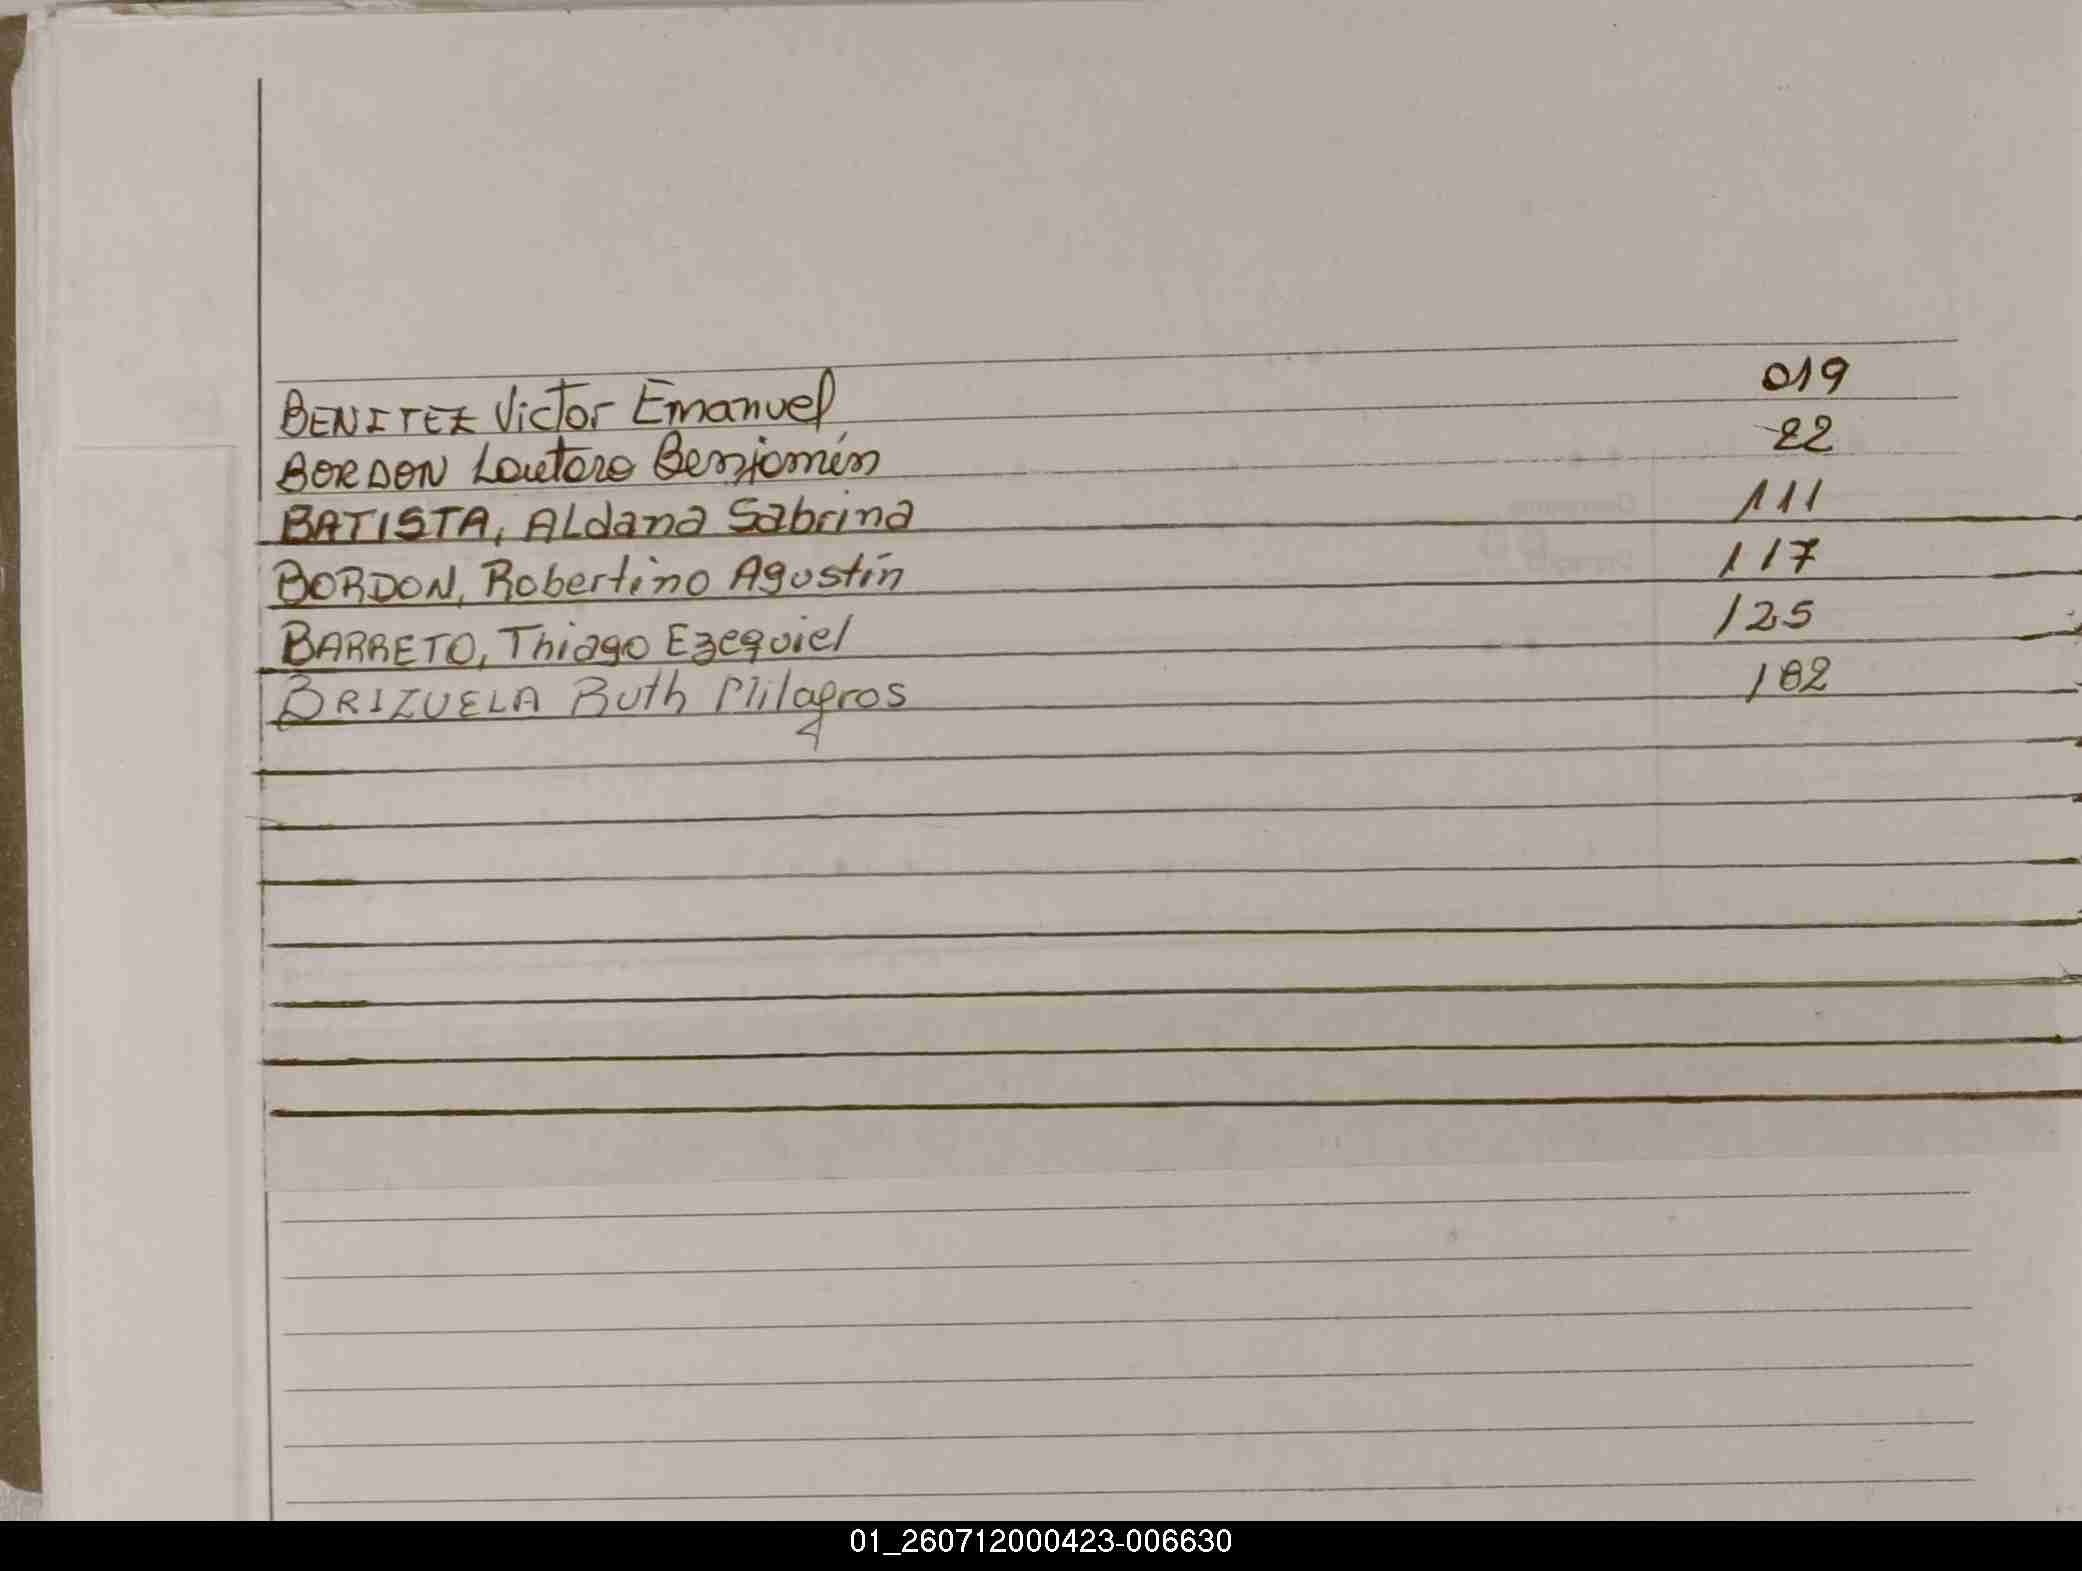 BENITEZ Victor Emanuel 019
BORDON Lautaro Benjamín 22
BATISTA, ALdana Sabrina 111
BORDON, Robertino Agustín 117
BARRETO, Thiago Ezequiel 125
BRIZUELA Ruth Milagros 182
01_260712000423-006630